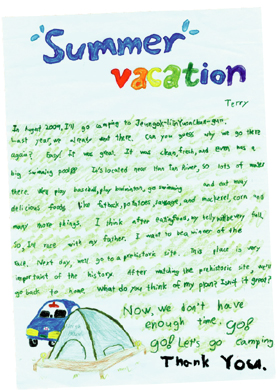 Summer
vacation
Terry
In August 2009, I'll go camping to Jeungok-li in Yeonchun-gun.
Last year, we already went there. Can you guess why we go there
again? Easy! It was great. It was clean, fresh, and even was a
big swimming pool!!! It's located near Han Tan River, so lots of water
there. We play baseball, play badminton, go swimming and eat many
delicious foods like potatoes, sausage, and mackerel, corn and
many more things. I think after eating food, my belly will be very full.
So, I'll race with my father. I want to be a winner of the
race. Next day, we'll go to a prehistoric site. This place is very
important of the history. After watching the prehistoric site, we'll
go back to home. What do you think of my plan? Isn't it great?
Now, we don't have
enough time, go!
go! Let's go camping
Thank You.